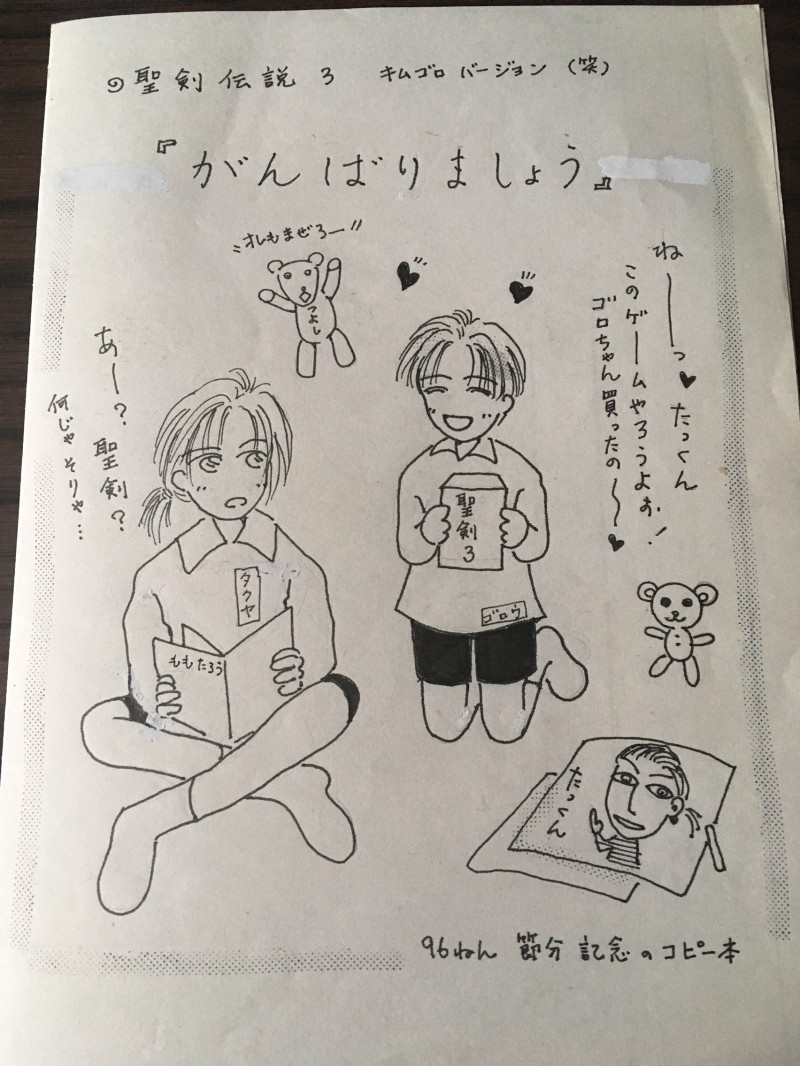 聖剣伝説 3 キムゴロ バージョン (笑)
『がんばりましょう』
オレもまぜろー
つよし
ねーーっ♥たっくん
このゲームやろうよぉ!
ゴロちゃん買ったの〜♥
あー? 聖剣?
何じゃそりゃ…
聖剣3
タクヤ
ゴロウ
ももたろう
たっくん
96ねん 節分 記念のコピー本